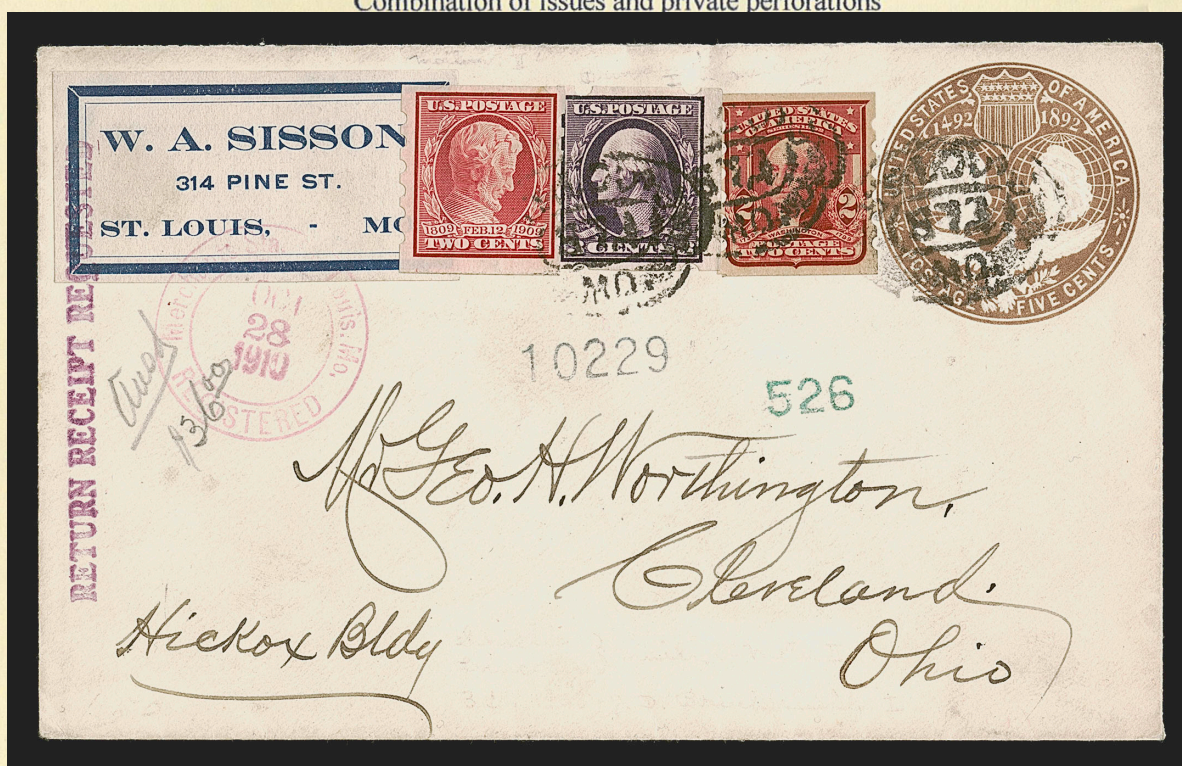 Combination of issues and private perforations
W. A. SISSON
314 PINE ST.
ST. LOUIS, - MO
U.S. POSTAGE
1809 FEB. 12 1909
TWO CENTS
U.S. POSTAGE
CENTS
UNITED STATES OF AMERICA
2 2
WASHINGTON
POSTAGE
TWO CENTS
UNITED STATES OF AMERICA
1492 1892
POSTAGE FIVE CENTS
ST. LOUIS
MO.
RETURN RECEIPT REQUESTED
OCT
28
1910
Louis, Mo.
REGISTERED
10229
526
Mr Geo. H. Worthington,
Cleveland.
Ohio
Hickox Bldg